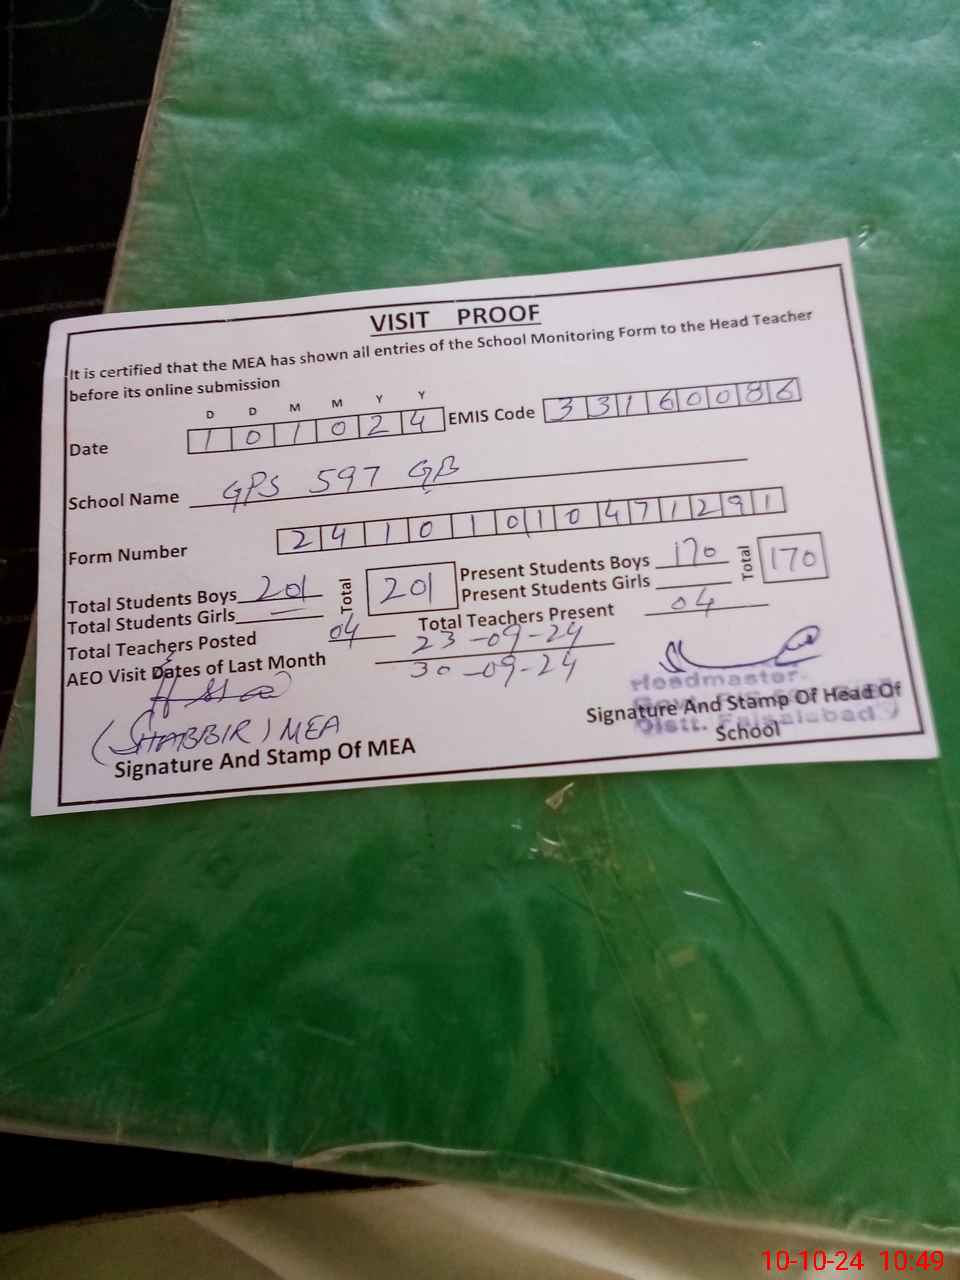 VISIT PROOF
It is certified that the MEA has shown all entries of the School Monitoring Form to the Head Teacher
before its online submission
D D M M Y Y
Date 1 0 1 0 2 4 EMIS Code 3 3 1 6 0 0 8 6
School Name GPS 597 GB
Form Number 2 4 1 0 1 0 1 0 4 7 1 2 9 1
Total Students Boys 201 Total 201 Present Students Boys 170 Total 170
Total Students Girls — Present Students Girls
Total Teachers Posted 04 Total Teachers Present 04
AEO Visit Dates of Last Month 23-09-24
30-09-24
(SHABBIR) MEA
Signature And Stamp Of MEA
Headmaster
Signature And Stamp Of Head Of
Distt. Faisalabad
School
10-10-24 10:49